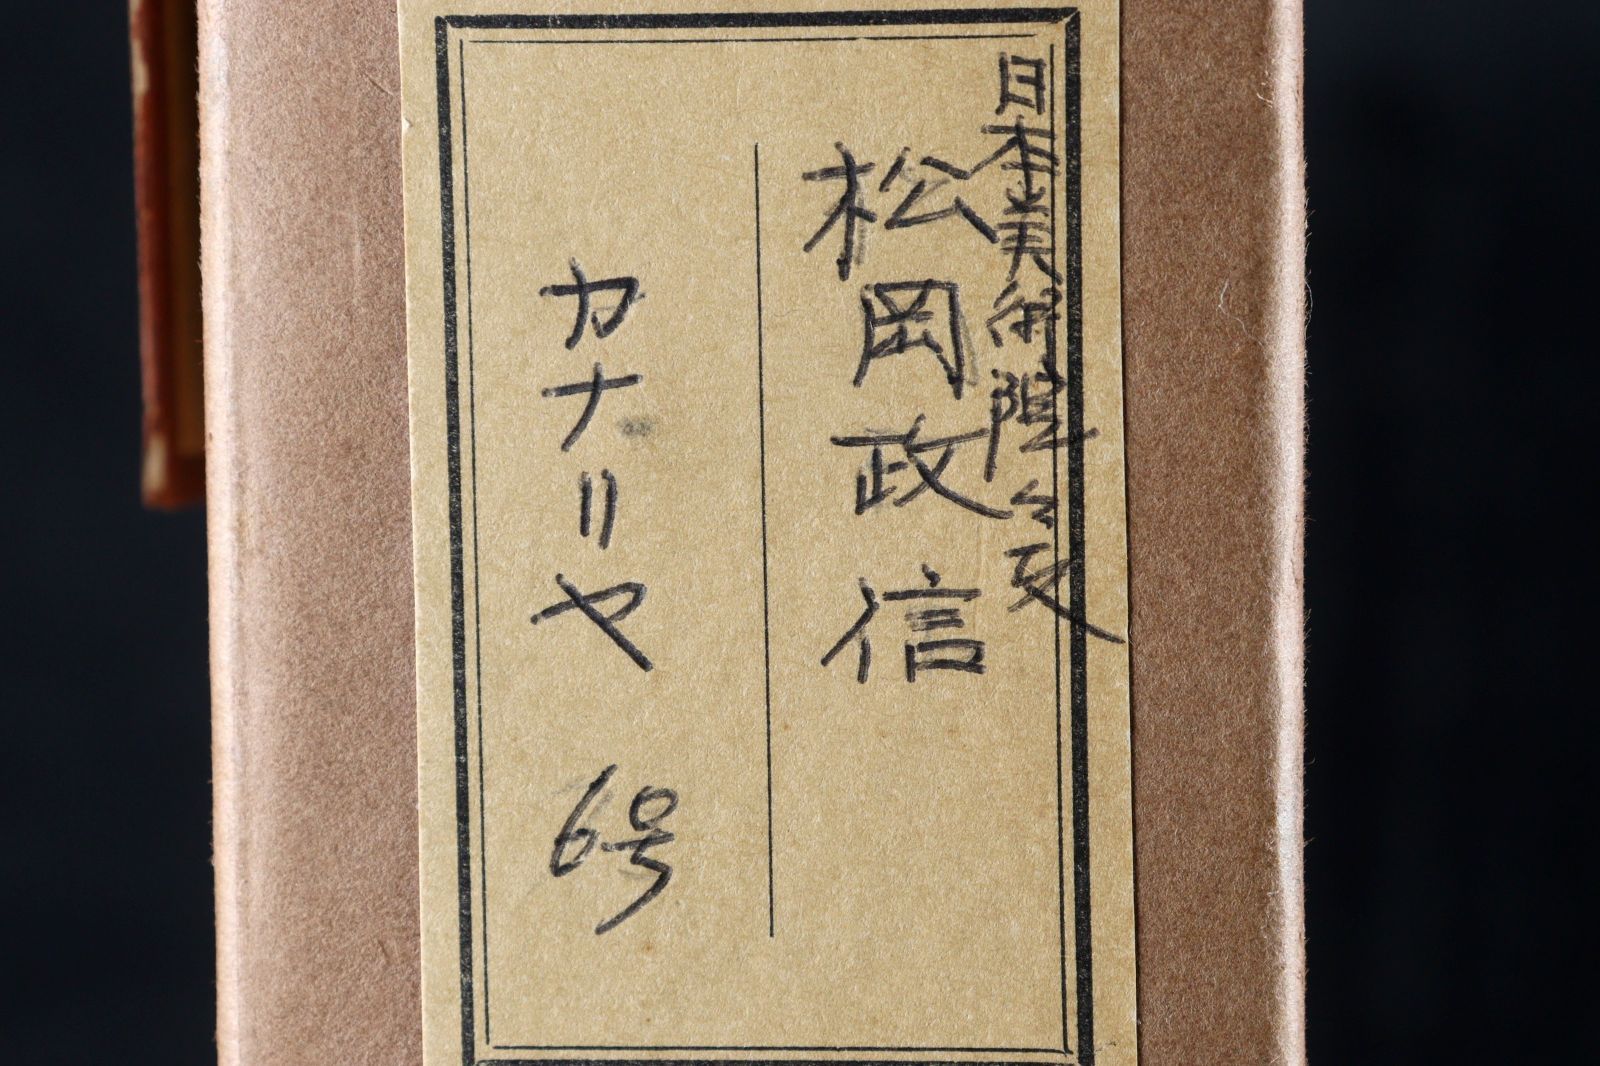 日本美術院会友
松岡政信
カナリヤ 6号